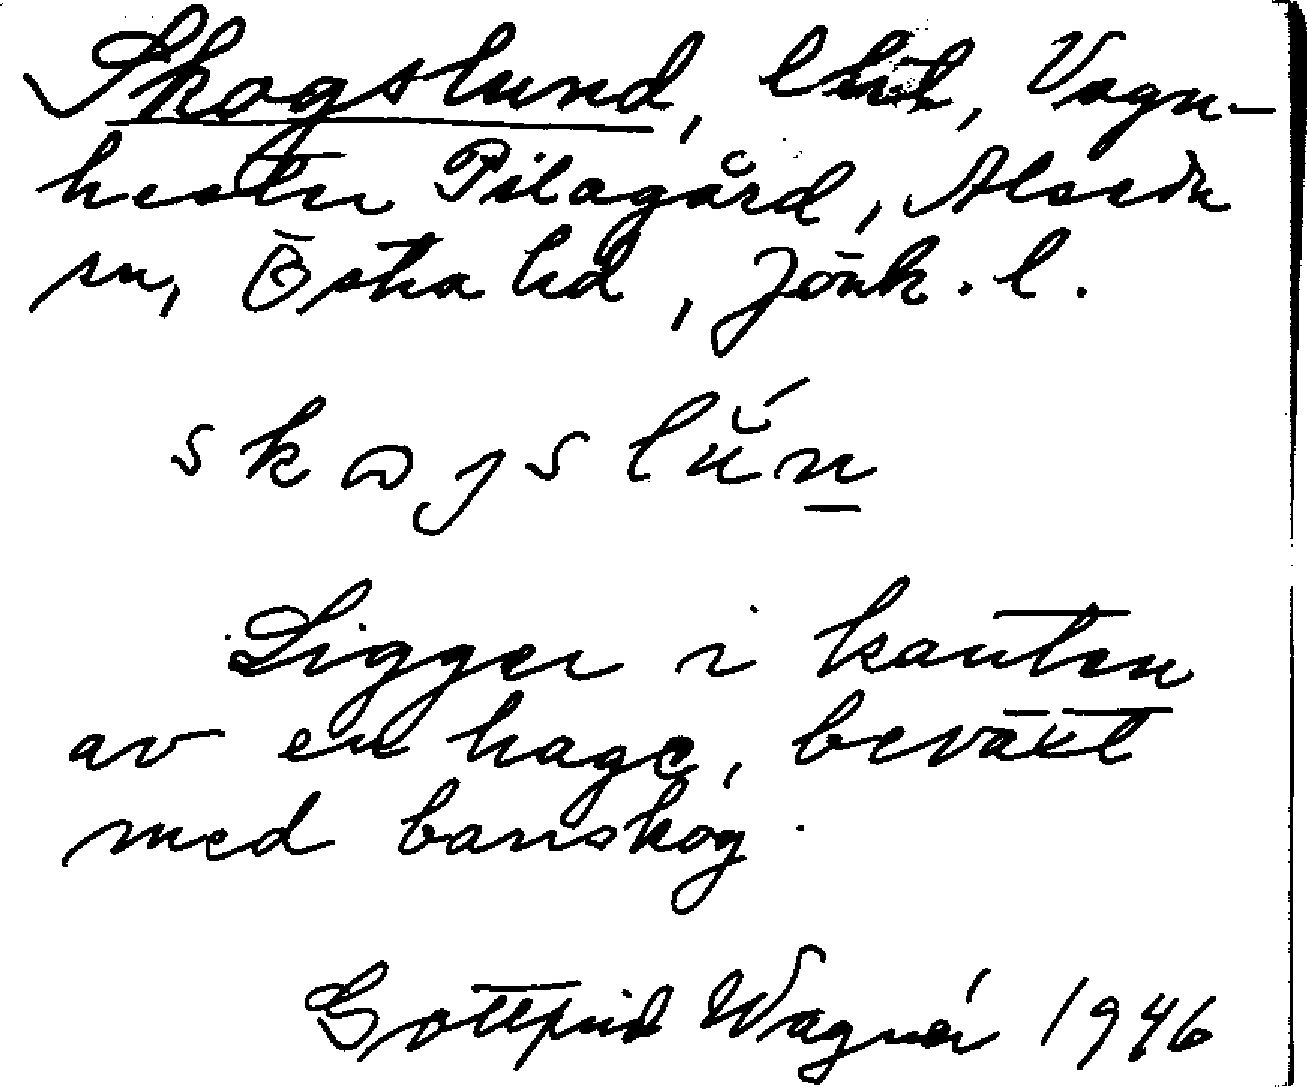 Skogslund, lht, Vagn-
hester Pilagård, Alseda
sn, Östra hd, Jönk. l.
skogslŭ́n
Ligger i kanten
av en hage, beväxt
med barrskog.
Gottfrid Wagnér 1946